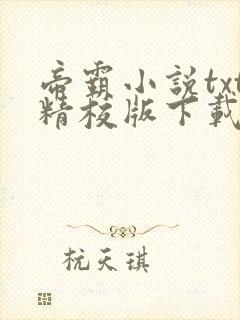 帝霸小説txt
精校版下載
杭天琪